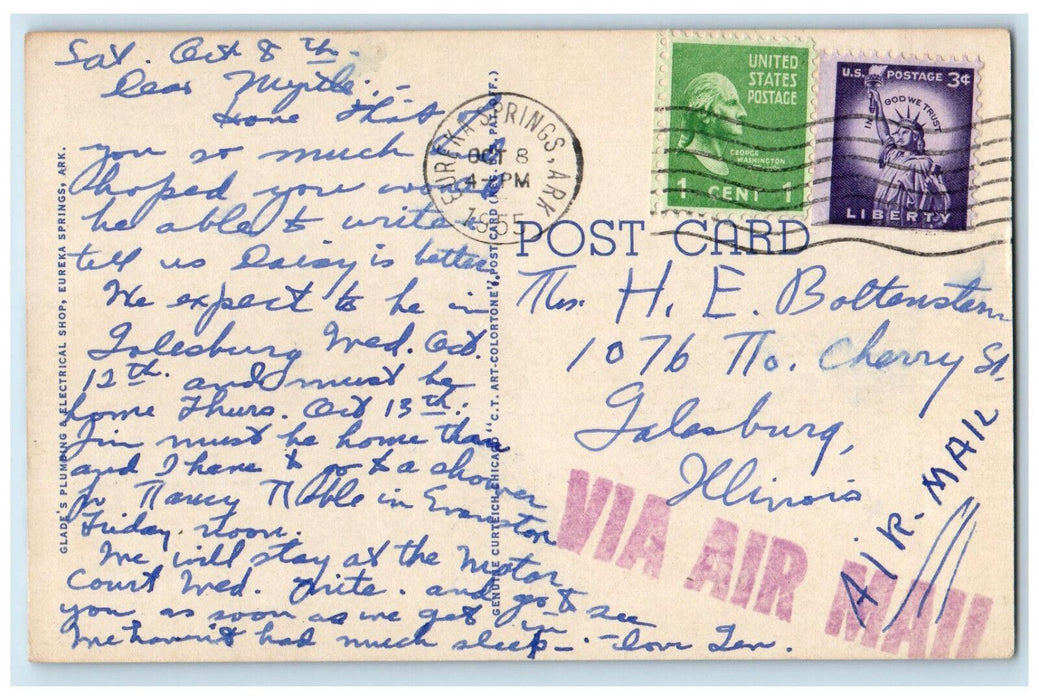 Sat. Oct 8th -
Dear Myrtle: -
Hope this
you so much
hoped you wouldn't
be able to write
tell us Daisy is better.
We expect to be in
Galesburg Wed. Oct.
12th. and must be
home Thurs. Oct 13th.
Jim must be home then
and I have to go to a shower
for Nancy Noble in Evanston
Friday noon.
We will stay at the Motor
Court Wed. nite. and go to see
you as soon as we get in
We haven't had much sleep - - love Gen.
GLADE'S PLUMBING & ELECTRICAL SHOP, EUREKA SPRINGS, ARK.
GENUINE CURTEICH-CHICAGO "C.T. ART-COLORTONE" POST CARD (REG. U.S. PAT. OFF.)
EUREKA SPRINGS, ARK
OCT 8
4-PM
1955
UNITED
STATES
POSTAGE
GEORGE
WASHINGTON
1 CENT 1
U.S. POSTAGE 3¢
IN GOD WE TRUST
LIBERTY
POST CARD
Mrs. H. E. Boltenstern
1076 No. Cherry St.
Galesburg,
Illinois
AIR-MAIL
VIA AIR MAIL